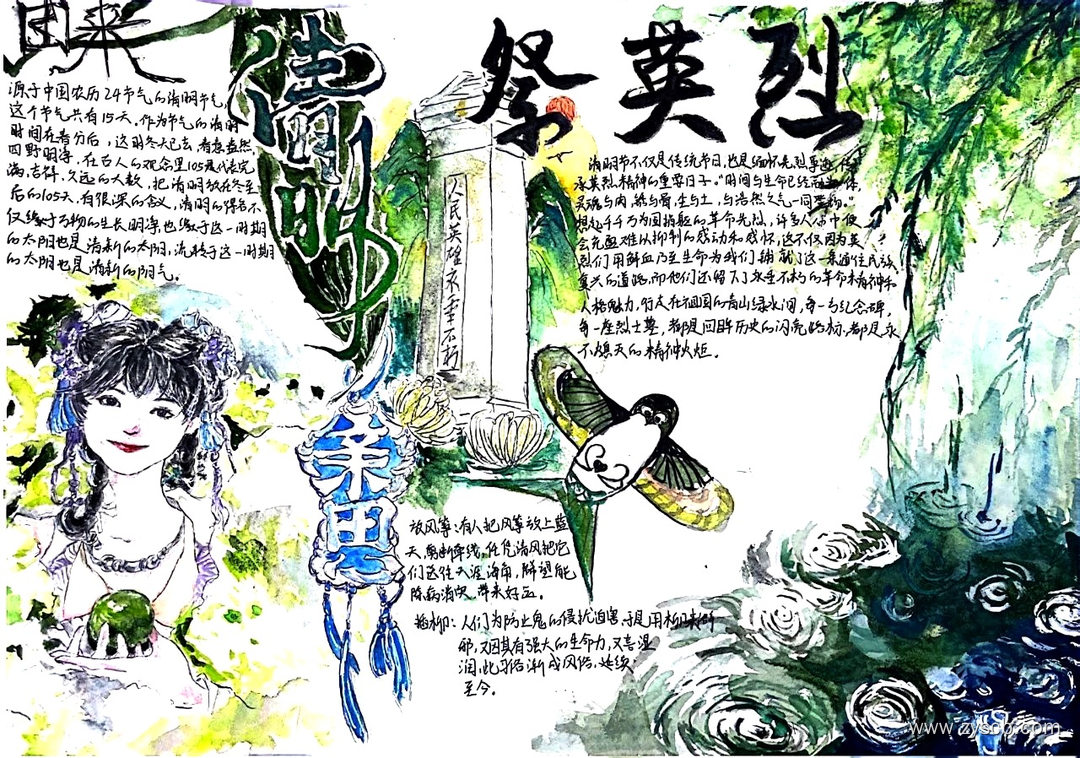 由来
源于中国农历24节气的清明节气,
这个节气共有15天。作为节气的清明
时间在春分后,这时冬天已去,春意盎然
四野明净,在古人的观念里105是代表完
满、吉祥、久远的大数,把清明放在冬至
后的105天,有很深的含义,清明的得名不
仅缘于万物的生长明净,也缘于这一时期
的太阳也是清新的太阳,流转于这一时期
的太阳也是清新的阳气。
清明
祭英烈
清明节不仅是传统节日,也是缅怀先烈
承英烈精神的重要日子。"时间与生命已经
灵魂与肉,熊与骨,尘与土,与浩然之气一同
想起千千万为国捐躯的革命先烈,许多人心中便
会充盈难以抑制的感动和感怀,这不仅因为英
烈们用鲜血乃至生命为我们铺就了这一条通往民族
复兴的道路,而他们还留下了永垂不朽的革命精神和
人格魅力,行走在祖国的青山绿水间,每一与纪念碑,
每一座烈士墓,都是回眸历史的闪亮路标,都是永
不熄灭的精神火炬。
人民英雄永垂不朽
习俗
放风筝:有人把风筝放上蓝
天,剪断牵线,任凭清风把它
们送往天涯海角,解望能
除病消灾,带来好运。
插柳:人们为防止鬼的侵扰迫害于是用柳来
邪,又因其有强大的生命力,又喜湿
润,此习俗渐成风俗,延续
至今。
www.zyscb.com